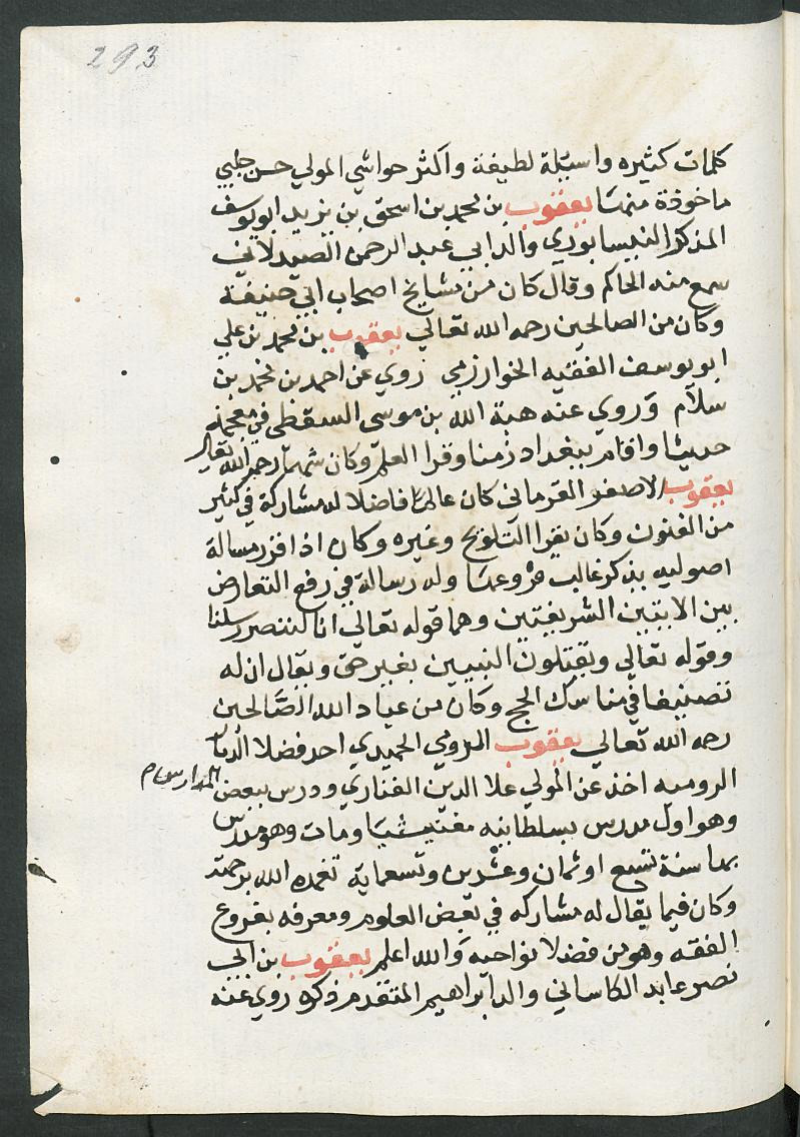 293
كلمات كثيره واسئلة لطيفة واكثر حواشي المولي حسن جلبي
ماخوذة منها يعقوب بن محمد بن اسحق بن يزيد ابو يوسف
المذكر النيسابوري والد ابي عبد الرحمن الصيدلاني
سمع منه الحاكم وقال كان من مشايخ اصحاب ابي حنيفة
وكان من الصالحين رحمه الله تعالي يعقوب بن محمد بن علي
ابو يوسف الفقيه الخوارزمي روي عن احمد بن محمد بن
سلام وروي عنه هبة الله بن موسى السقطي في معجمه
حديثا واقام ببغداد زمنا وقرا العلم وكان شهما رحمه الله تعالي
يعقوب الاصغر القرماني كان عالما فاضلا له مشاركة في كثير
من الفنون وكان يقرا التلويح وغيره وكان اذا قرر مسالة
اصوليه يذكر غالب فروعها وله رسالة في رفع التعارض
بين الايتين الشريفتين وهما قوله تعالي انا لننصر رسلنا
وقوله تعالي ويقتلون النبيين بغير حق ويقال ان له
تصنيفا في مناسك الحج وكان من عباد الله الصالحين
رحمه الله تعالي يعقوب الرومي الحميدي احد فضلا الديار
الروميه اخذ عن المولي علا الدين الفناري ودرس ببعض المدارس
وهو اول مدرس بسلطانيه مغنيسيا ومات وهو مدرس
بها سنة تسع او ثمان وعشرين وتسعماية تغمده الله برحمته
وكان فيما يقال له مشاركه في بعض العلوم ومعرفه بفروع
الفقه وهو من فضلا نواحيه والله اعلم يعقوب بن ابي
نصر عابد الكاساني والد ابراهيم المتقدم ذكره روي عنه